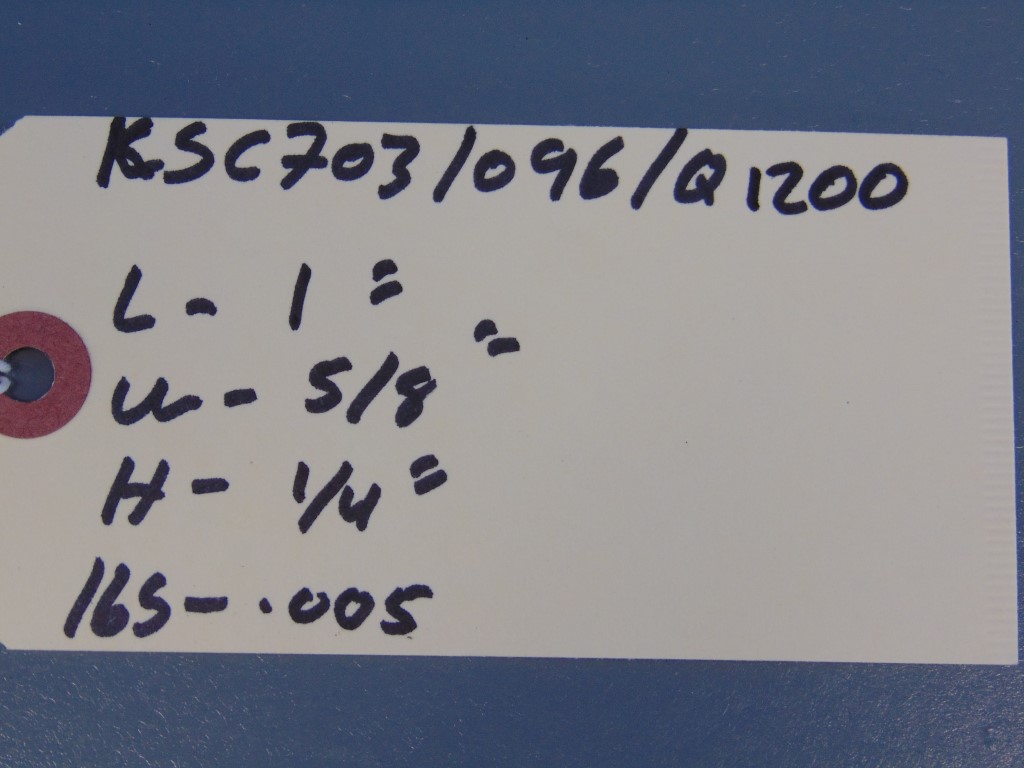 KSC703/096/Q1200
L - 1"
W - 5/8"
H - 1/4"
lbs - .005